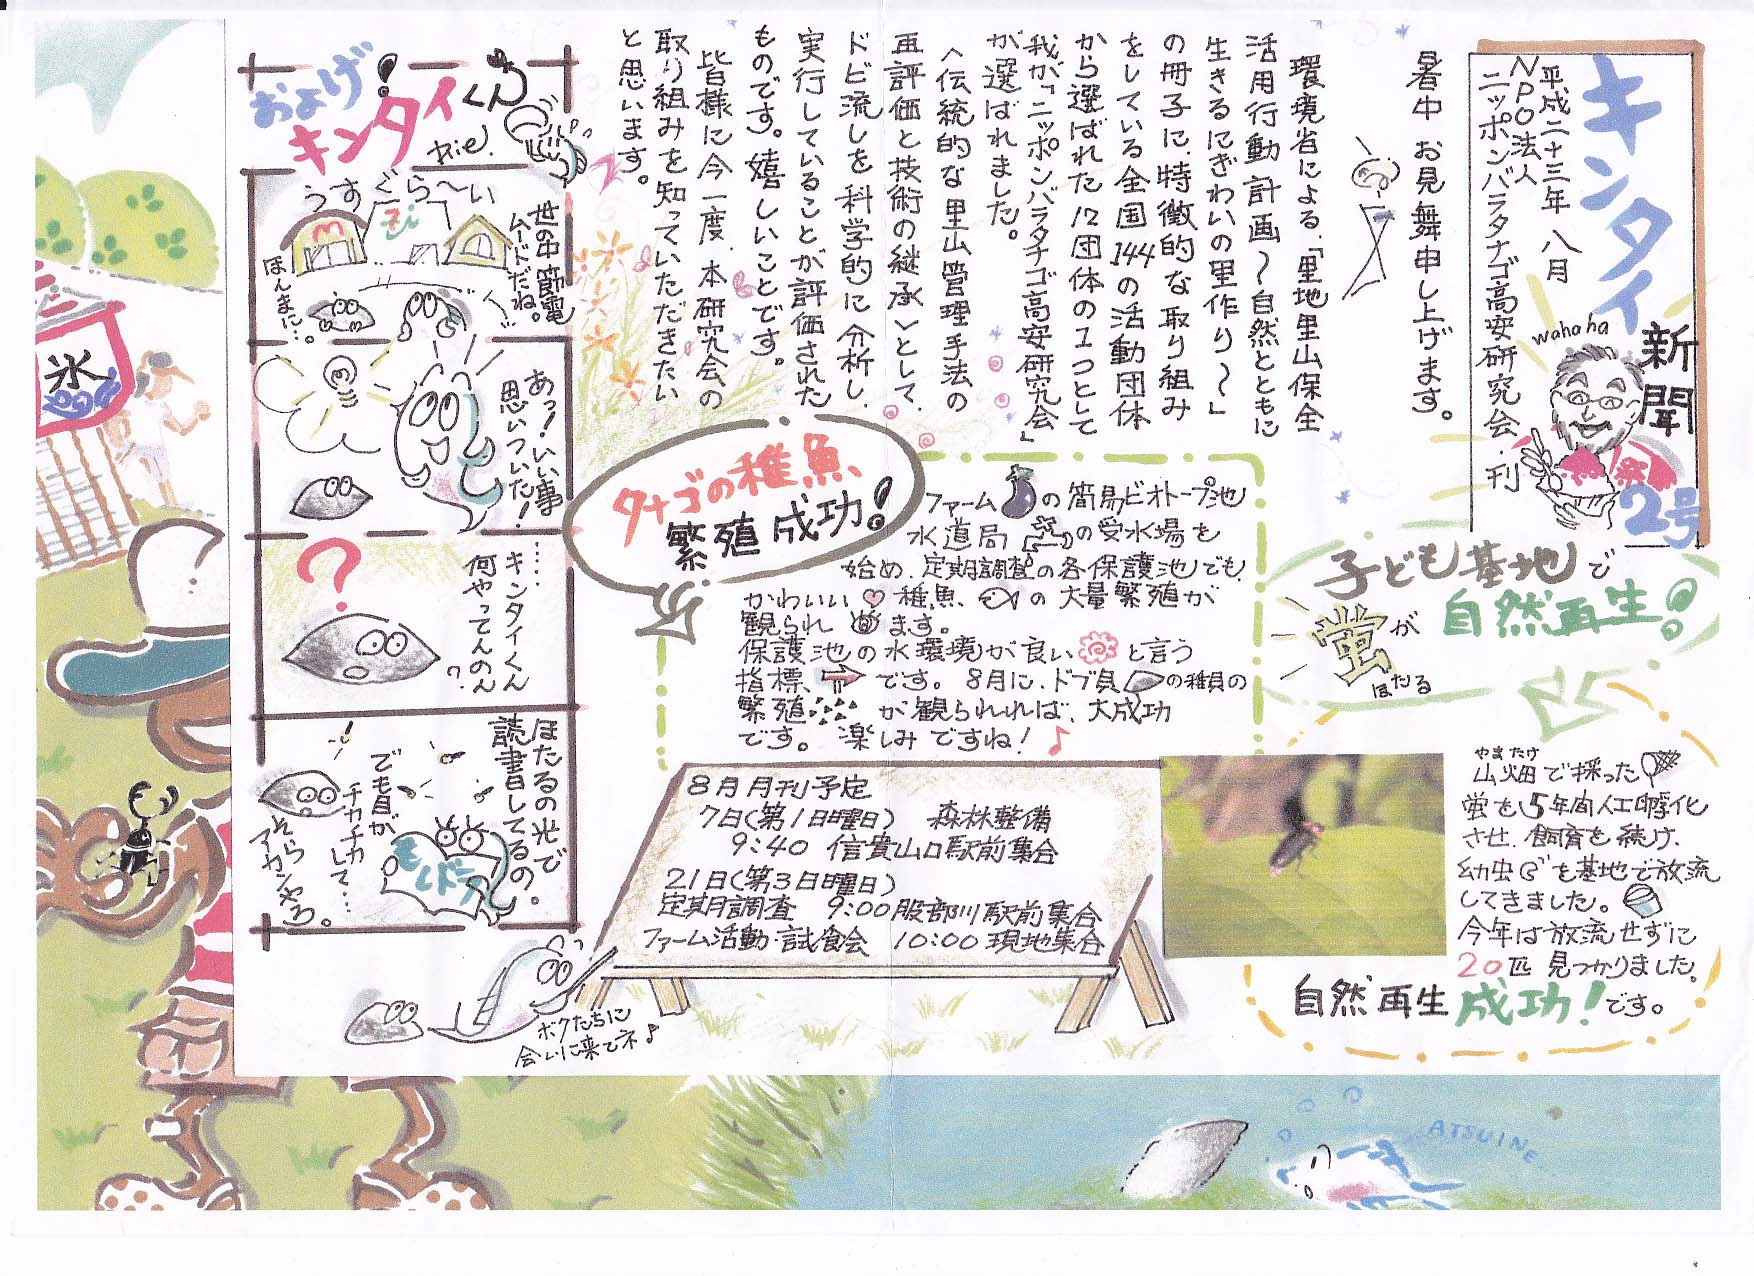 キンタイ新聞
2号
wahaha
祭
平成二十三年 八月
NPO法人
ニッポンバラタナゴ高安研究会・刊
暑中お見舞申し上げます。
環境省による、「里地里山保全
活用行動計画〜自然とともに
生きるにぎわいの里作り〜」
の冊子に、特徴的な取り組み
をしている全国144の活動団体
から選ばれた12団体の1つとして
我が「ニッポンバラタナゴ高安研究会」
が選ばれました。
＜伝統的な里山管理手法の
再評価と技術の継承＞として、
ドビ流しを科学的に分析し、
実行していることが評価された
ものです。嬉しいことです。
皆様に今一度、本研究会の
取り組みを知っていただきたい
と思います。
子ども基地で
蛍が
ほたる
自然再生！
やまたけ
山畑で採った
蛍を5年間人工孵化
させ、飼育を続け、
幼虫を基地で放流
してきました。
今年は放流せずに
20匹見つかりました。
自然再生成功！です。
タナゴの稚魚、
繁殖成功！
ファームの簡易ビオトープ池
水道局の受水場を
始め、定期調査の各保護池でも、
かわいい稚魚の大量繁殖が
観られます。
保護池の水環境が良いと言う
指標、です。8月に、ドブ貝の稚貝の
繁殖が観られれば、大成功
です。楽しみですね！♪
8月月刊予定
7日(第1日曜日) 森林整備
9:40 信貴山口駅前集合
21日(第3日曜日)
定期調査 9:00 服部川駅前集合
ファーム活動・試食会 10:00 現地集合
およげ！
キンタイくん
Rie.
うすぐら〜い
世の中節電
ムードだね。
ほんまに…。
あっ！いい事
思いついた！
？
……
キンタイくん
何やってんのん
?
ほたるの光で、
読書してるの。
でも目が
チカチカ
して…
そら
アカンやろ。
ボクたちに
会いに来てネ♪
氷
ATSUINE...